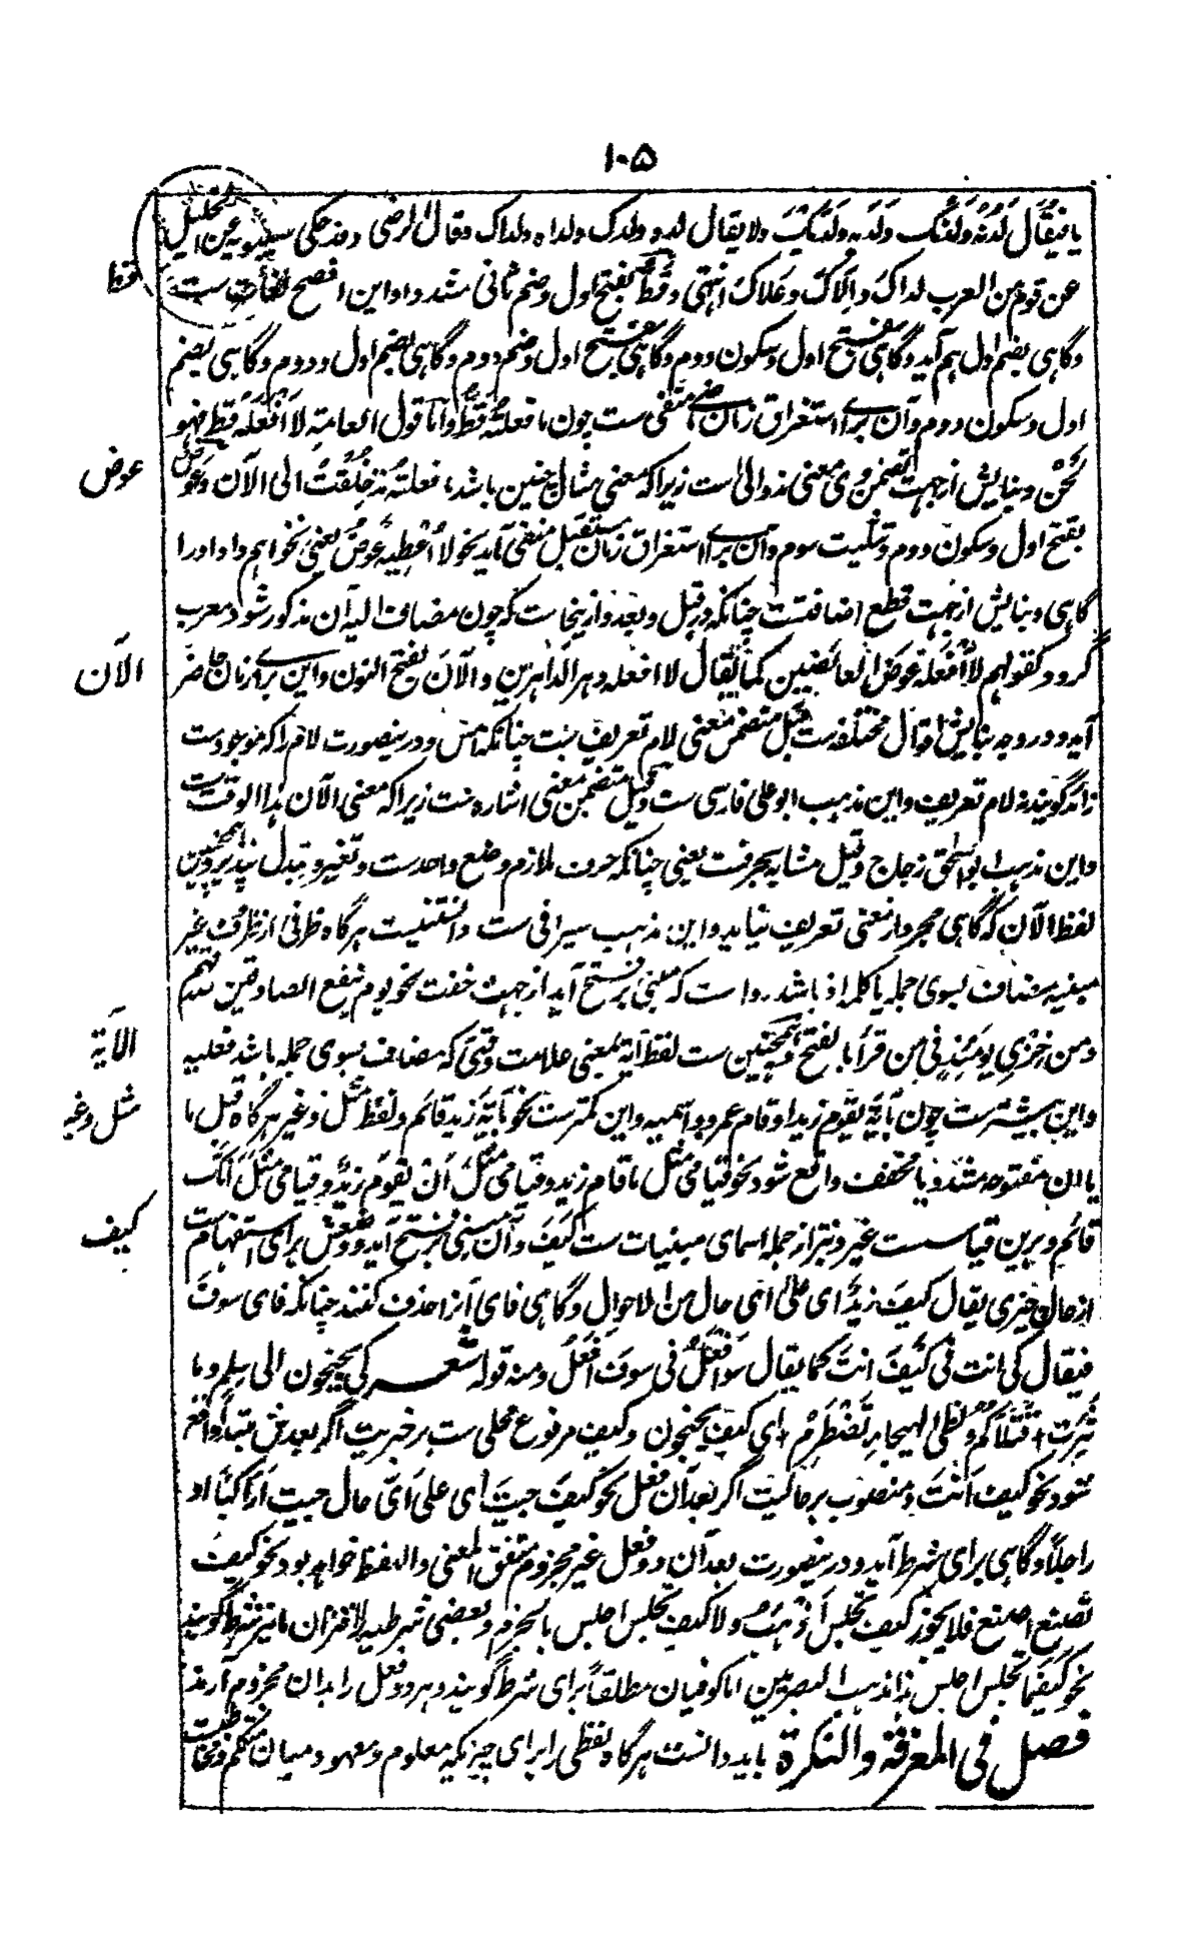 ۱۰۵
یا فیقال لَدُنْهُ ولَدُنْکَ ولَدَنه ولَدَنْکَ ولا یقال لده ولدک ولداه ولداک وقال الرضی وقد حکی سیبویه عن الخلیل
قط
عن قوم من العرب لداک و اِلاکَ و عَلاکَ انتهی و قَطُّ بفتح اول وضم ثانی مشدد او این افصح لغات ست
و گاهی بضم اول هم آید و گاهی بفتح اول و سکون دوم و گاهی بفتح اول وضم دوم و گاهی بضم اول و دوم و گاهی بضم
اول و سکون دوم و آن برای استغراق زمان ماضی منفی ست چون ما فعلتُه قطُّ و اما قول العامة لا اَفْعَلُه قط فهو
عوض
لَحْنٌ و بنایش از جهت تضمن وی معنی مذ و الی ست زیرا که معنی مثال چنین باشد ما فعلته مذ خُلِقْتُ الی الآن و عَوض
بفتح اول و سکون دوم و تثلیث سوم و آن برای استغراق زمان مستقبل منفی آید نحو لا اُعْطِیه عوضُ یعنی نخواهم داد او را
گاهی و بنایش از جهت قطع اضافتست چنانکه در قبل و بعد و ازینجاست که چون مضاف الیه آن مذکور شود معرب
الآن
گردد کقولهم لا اَفْعَلُه عَوضَ العائضین کما یقال لا افعله دهر الداهرین و الآنَ بفتح النون و این برای زمان حاضر
آید و در وجه بنایش اقوال مختلفه ست قیل متضمن معنی لام تعریف ست چنانکه امس و درینصورت لام را که موجودست
زائد گویند نه لام تعریف و این مذهب ابو علی فارسی ست و قیل متضمن معنی اشاره ست زیرا که معنی الآن هذا الوقت ست
و این مذهب ابو اسحق زجاج و قیل مشابه بحرفست یعنی چنانکه حرف ملازم وضع واحدست و تغیر و تبدل نپذیرد همچنین
لفظ الآن که گاهی مجرد از معنی تعریف نیاید و این مذهب سیرافی ست دانستنیست هرگاه ظرفی از ظروف غیر
مبنیه مضاف بسوی جمله یا کلمه اذ باشد رواست که مبنی بر فتح آید از جهت خفت نحو یوم ینفع الصادقین صدقهم
الآیة
و من خِزْیِ یومَئِذٍ فی من قرأ بالفتح و همچنین ست لفظ آیة بمعنی علامت وقتی که مضاف بسوی جمله باشد فعلیه
مثل وغیر
و این بیشترست چون بآیةَ یقوم زید او قام عمرو و اسمیه و این کمترست نحو بآیةَ زید قائم و لفظ مثل و غیر هرگاه قبل ما
یا ان مفتوحه مشدد یا مخفف واقع شود نحو قیامی مثلَ ما قام زید و قیامی مثلَ اَنْ یقوم زیدٌ و قیامی مثلَ انّک
کیف
قائم و برین قیاس ست غیر و نیز از جمله اسمای مبنیات ست کَیْفَ و آن مبنی بر فتح آید و وضعش برای استفهام ست
از حال چیزی یقال کیفَ زیدٌ ای علی ای حال من الاحوال و گاهی فای آنرا حذف کنند چنانکه فای سوف
فیقال کی انت فی کَیْفَ انتَ کما یقال سَو اَفْعَلُ فی سوف اَفْعَلُ و منه قوله شعر کی تجنحون الی سلم و ما
ثُئِرَت + قَتْلاکُمُ ولظی الهیجاء تَضْطَرِمُ + ای کیف تجنحون و کیف مرفوع محلی ست بر خبریت اگر بعدش مبتدا واقع
شود نحو کیف اَنْتَ و منصوب بر حالیت اگر بعد آن فعل نحو کیفَ جِئْتَ ای علی اَیّ حال جیت اَراکبًا او
راجلًا و گاهی برای شرط آید و درینصورت بعد آن دو فعل غیر مجزوم متفق المعنی و اللفظ خواهد بود نحو کیفَ
تصنع اصنع فلا یجوز کیف تجلس اَذْهَبُ و لا کیف تجلس اجلس بالجزم و بعضی شرطیه لاقتران ما نیز شرط گویند
نحو کَیْفَما تجلس اجلس هذا مذهب البصریین اما کوفیان مطلقاً برای شرط گویند و هر دو فعل را بدان مجزوم آرند
فصل فی المعرفة والنکرة باید دانست هرگاه لفظی را برای چیزیکه معلوم و معهود میان متکلم و مخاطب ست